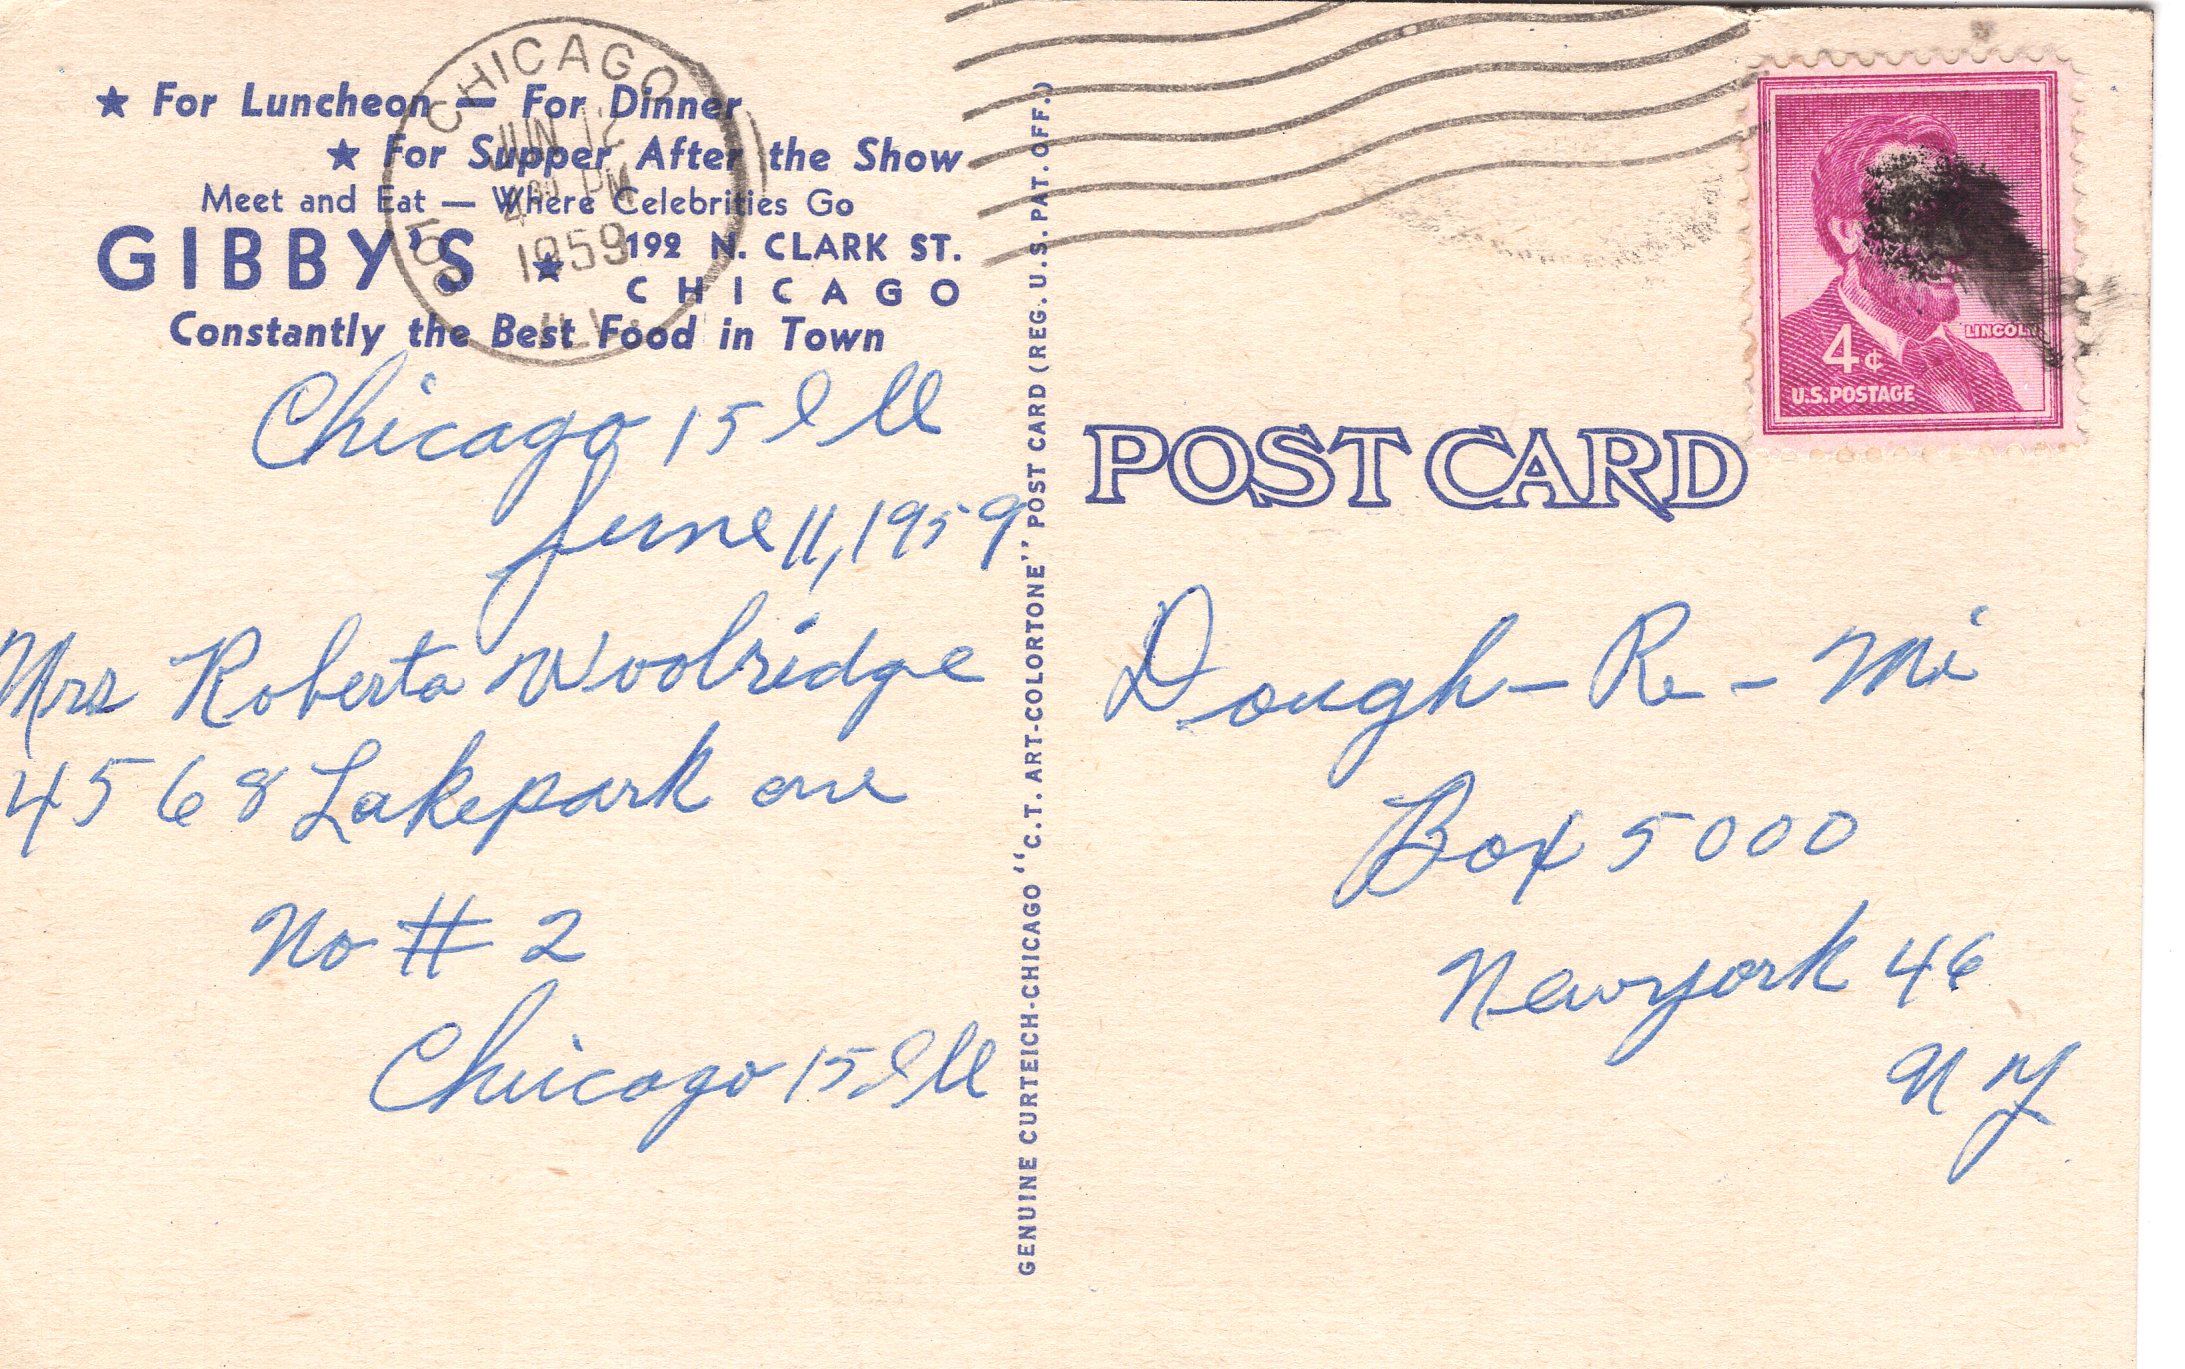 ★ For Luncheon — For Dinner
★ For Supper After the Show
Meet and Eat — Where Celebrities Go
GIBBY'S ★ 192 N. CLARK ST.
CHICAGO
Constantly the Best Food in Town
CHICAGO
JUN 12
4 PM
1959
ILL.
Chicago 15 Ill
June 11, 1959
Mrs Roberta Woolridge
4568 Lakepark ave
No # 2
Chicago 15 Ill
GENUINE CURTEICH-CHICAGO "C.T. ART-COLORTONE" POST CARD (REG. U.S. PAT. OFF.)
LINCOLN
4¢
U.S. POSTAGE
POST CARD
Dough-Re-Mi
Box 5000
Newyork 46
NY